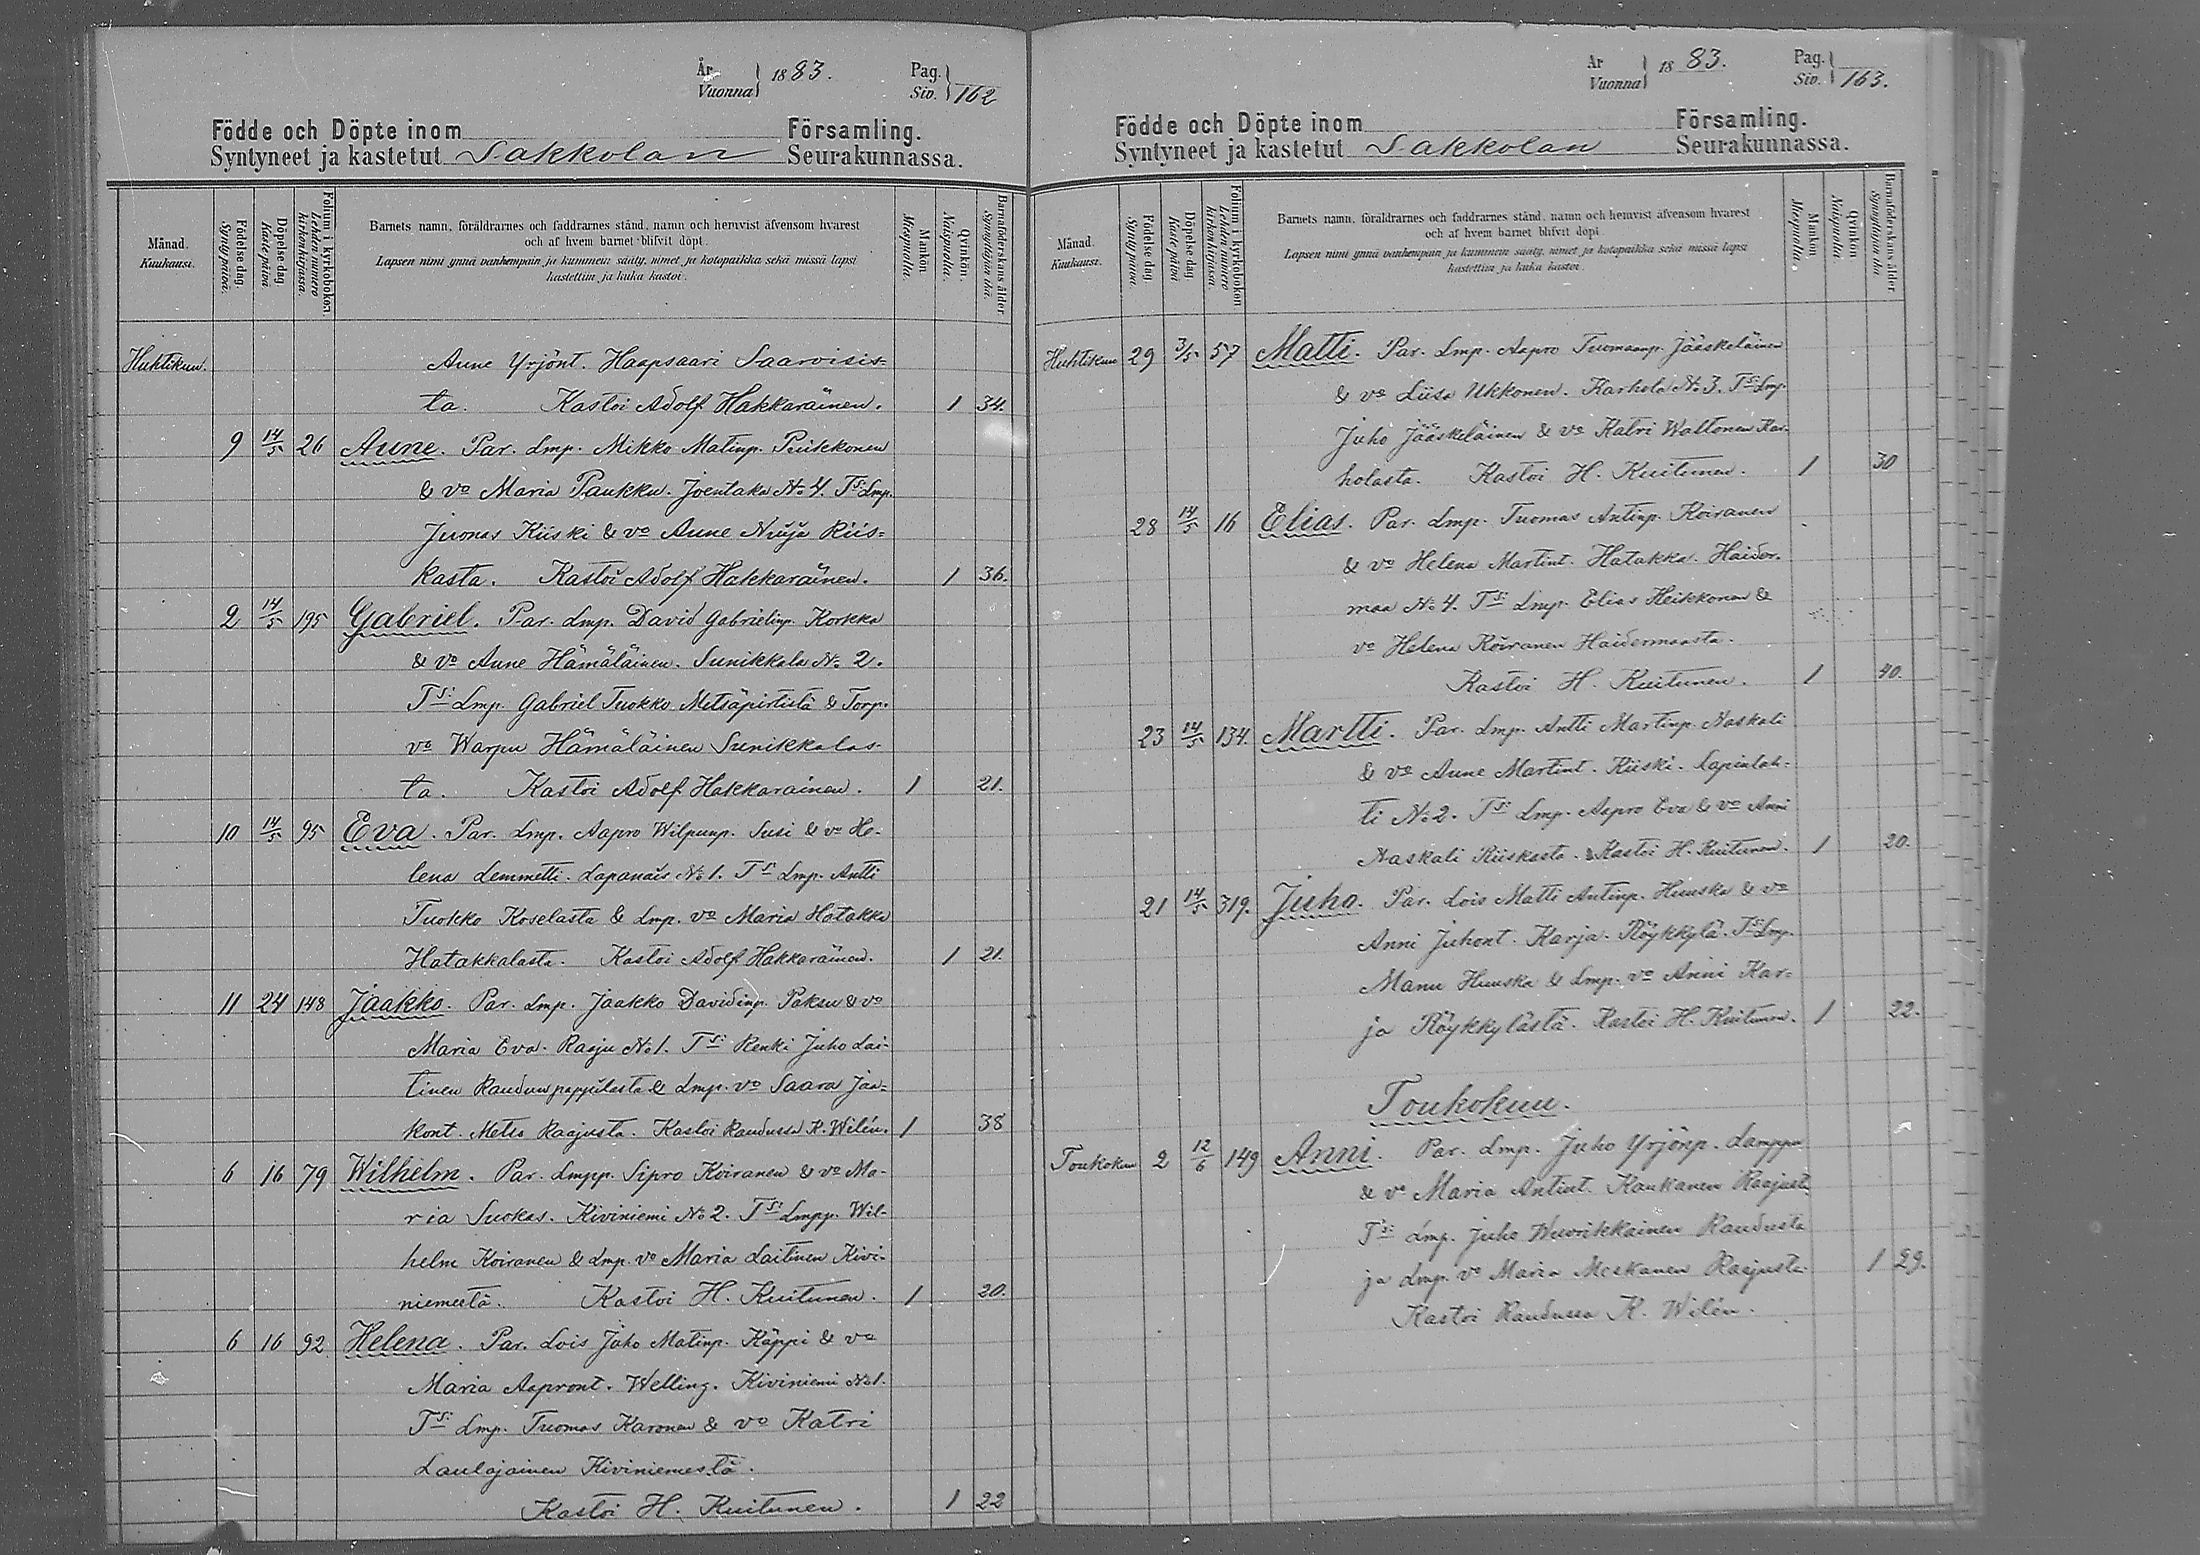 År Vuonna } 1883. Pag. Siv. } 162
Födde och Döpte inom Församling.
Syntyneet ja kastetut Sakkolan Seurakunnassa.
Månad. Kuukausi.
Födelsedag. Syntymäpäivä.
Döpelsedag. Kastepäivä.
Folium i kyrkoboken. Lehden numero kirkonkirjassa.
Barnets namn, föräldrarnes och faddrarnes stånd, namn och hemvist äfvensom hvarest
och af hvem barnet blifvit döpt.
Lapsen nimi ynnä vanhempain ja kummein sääty, nimet ja kotopaikka sekä missä lapsi
kastettiin ja kuka kastoi.
Mankön. Miespuolia.
Qvinkön. Naispuolia.
Barnaföderskans ålder. Synnyttäjän ikä.
Huhtikuu. Anne Yrjönt. Haapsaari Saarvisis=
ta. Kastoi Adolf Hakkaräinen. 1 34.
9 14/5 26 Aune. Par. Lmp. Mikko Matinp. Piikkonen
& vo Maria Paukku. Joentaka No 4. Tsi Lmp.
Juonas Kiiski & vo Aune Nuija Riis=
kasta. Kastoi Adolf Hakkaräinen. 1 36.
2 14/5 195 Gabriel. Par. Lmp. David Gabrielinp. Korkka
& vo Anne Hämäläinen. Sunikkala No 2.
Tsi Lmp. Gabriel Tuokko Metsäpirtistä & Torp.
vo Warpu Hämäläinen Sunikkalas-
ta. Kastoi Adolf Hakkarainen. 1 21.
10 14/5 95 Eva. Par. Lmp. Aapro Wilpunp. Susi & vo He-
lena Lemmetti. Lapanais No 1. Tsi Lmp. Antti
Tuokko Koselasta & Lmp. vo Maria Hatakka
Hatakkalasta. Kastoi Adolf Hakkaräinen. 1 21.
11 24 148 Jaakko. Par. Lmp. Jaakko Davidinp. Paksu & vo
Maria Eva. Raaju No 1. Tsi Renki Juho Lai-
tinen Raudunpappilasta & Lmp. vo Saara Jaa=
kont. Metso Raajusta. Kastoi Raudussa K. Wilén. 1 38
6 16 79 Wilhelm. Par. Lmpp. Sipro Koiranen & vo Ma-
ria Suokas. Kiviniemi No 2. Tsi Lmpp. Wil-
helm Koiranen & Lmp. vo Maria Laitinen Kivi-
niemestä. Kastoi H. Kuitunen. 1 20.
6 16 92 Helena. Par. Lois Juho Matinp. Käppi & vo
Maria Aapront. Welling. Kiviniemi No 1.
Tsi Lmp. Tuomas Karonen & vo Katri
Laulajainen Kiviniemestä.
Kastoi H. Kuitunen. 1 22
År Vuonna } 1883. Pag. Siv. } 163.
Födde och Döpte inom Församling.
Syntyneet ja kastetut Sakkolan Seurakunnassa.
Månad. Kuukausi.
Födelsedag. Syntymäpäivä.
Döpelsedag. Kastepäivä.
Folium i kyrkoboken. Lehden numero kirkonkirjassa.
Barnets namn, föräldrarnes och faddrarnes stånd, namn och hemvist äfvensom hvarest
och af hvem barnet blifvit döpt.
Lapsen nimi ynnä vanhempain ja kummein sääty, nimet ja kotopaikka sekä missä lapsi
kastettiin ja kuka kastoi.
Mankön. Miespuolia.
Qvinkön. Naispuolia.
Barnaföderskans ålder. Synnyttäjän ikä.
Huhtikuu 29 3/5 57 Matti. Par. Lmp. Aapro Tuomaanp. Jääskeläinen
& vo Liisa Ukkonen. Karhola No 3. Tsi Lmp.
Juho Jääskeläinen & vo Katri Wattonen Kar-
holasta. Kastoi H. Kuitunen. 1 30
28 14/5 16 Elias. Par. Lmp. Tuomas Antinp. Koiranen
& vo Helena Martint. Hatakka. Haider-
maa No 4. Tsi Lmp. Elias Heikkonen &
vo Helena Koiranen Haidermaasta.
Kastoi H. Kuitunen. 1 40.
23 14/5 134. Martti. Par. Lmp. Antti Martinp. Naskali
& vo Aune Martint. Kiiski. Lapinlah-
ti No 2. Tsi Lmp. Aapro Eva & vo Anni
Naskali Riiskasta. Kastoi H. Kuitunen. 1 20.
21 14/5 319. Juho. Par. Lois Matti Antinp. Huuska & vo
Anni Juhont. Karja. Röykkylä. Tsi Lmp.
Manu Huuska & Lmp. vo Anni Kar=
ja Röykkylästä. Kastoi H. Kuitunen. 1 22.
Toukokuu.
Toukokuu 2 12/6 149 Anni. Par. Lmp. Juho Yrjönp. Lamppu
& vo Maria Antint. Kaukanen Raajust.
Tsi Lmp. Juho Wuorikkainen Raudusta
ja Lmp. vo Maria Meskanen Raajusta. 1 29.
Kastoi Raudussa K. Wilén.